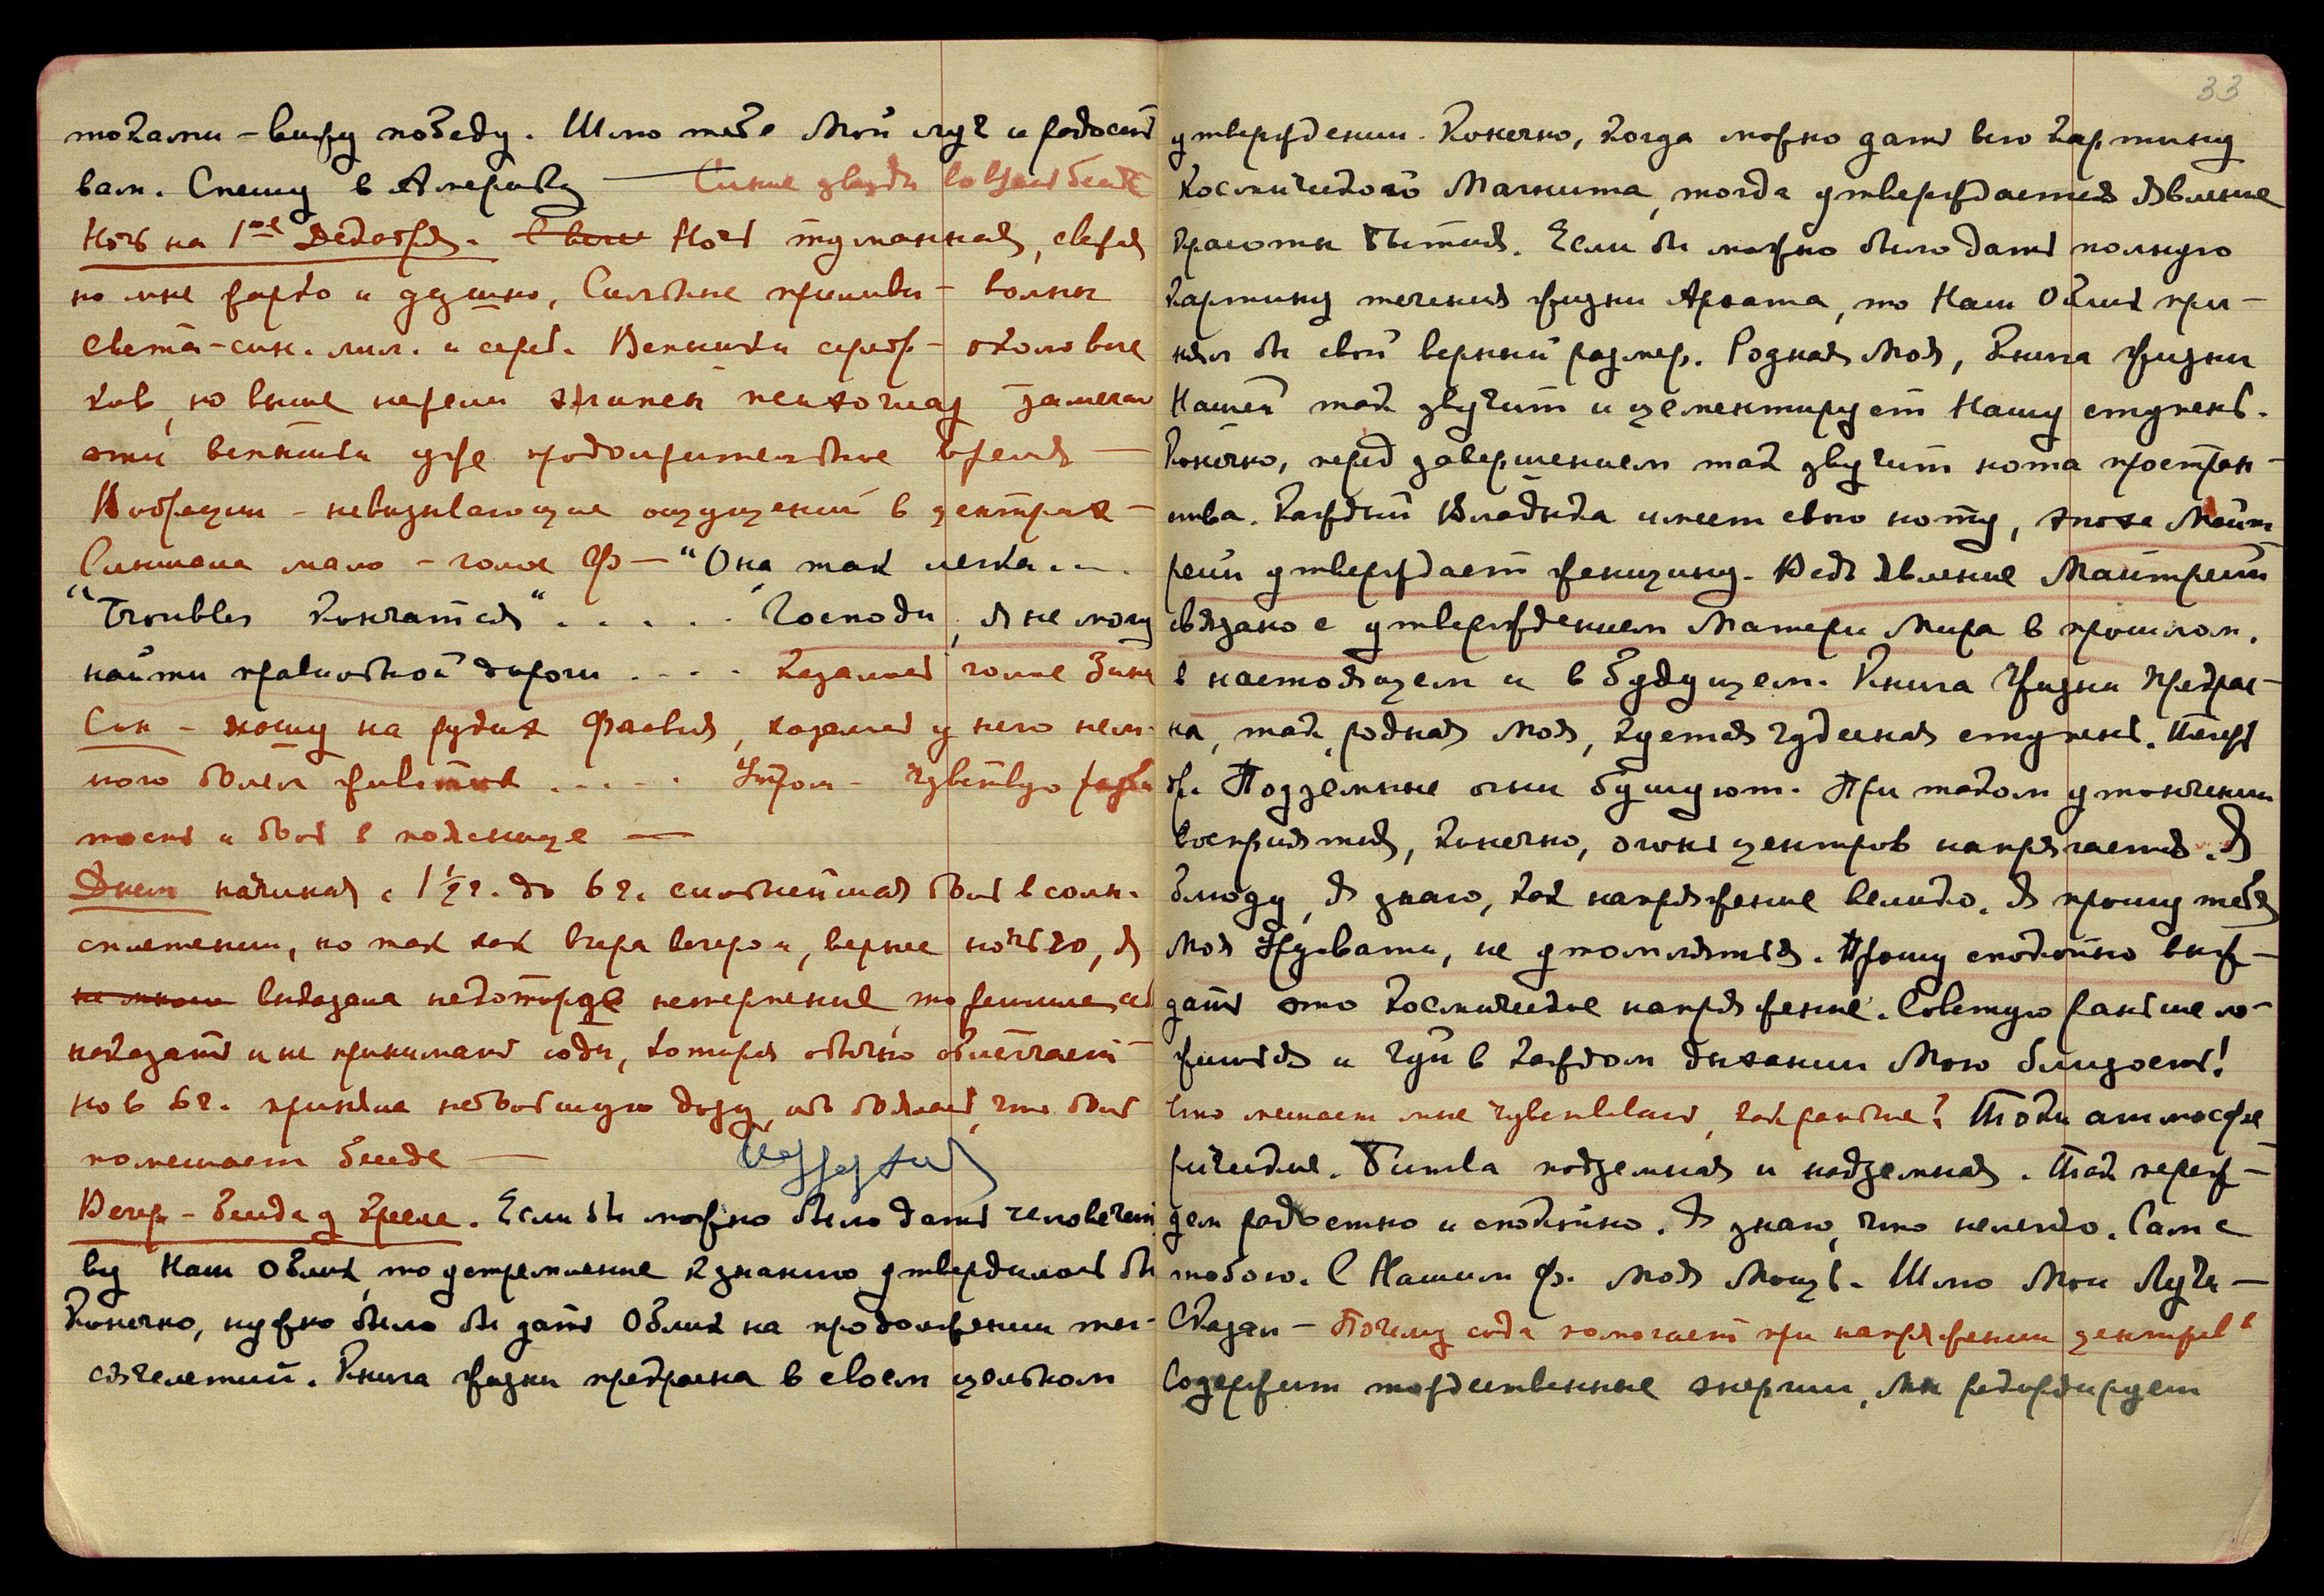 токами – вижу победу. Шлю тебе Мой луч и радость
вам. Спешу в Америку — Синие звезды во время беседы
Ночь на 1ое Декабря. Ночь туманная, свежая
но мне жарко и душно, Сильные приливы – волны
света – син. лил. и сереб. Венчики серебр –
ков, но выше нежели замечаю
эти венчики уже продолжительное время —
Инфекции – невызывающие ощущений в центрах –
Слышала мало – голос Ф — "Она так легка . . .
"Troubles кончатся" . . . . . Господи, я не могу
найти правильной дороги . . . . казался голос Зины
Сон – хожу на руках Флавия, казалось у него нем-
ного болел животик . . . . . Утром – чувствую
тость и боль в пояснице —
Днем начиная с 1½ ч. до 6 ч. сильнейшая боль в солн.
сплетении, но так как вчера вечером, вернее ночью, я
не много выказала некоторое нетерпение то решила не
показать и не принимать соды, которая обычно облегчает
но в 6 ч. приняла небольшую дозу, ибо боялась, что боль
помешает беседе —
Вечер – беседа у кресле. Если бы можно было дать человечест
ву Наш Облик, то устремление к знанию утвердилось бы
Конечно, нужно было бы дать Облик на продолжении ты-
сячелетий. Книга жизни прекрасна в своем цельном
33
утверждении. Конечно, когда можно дать всю картину
Космического Магнита, тогда утверждается явление
красоты Бытия. Если бы можно было дать полную
картину течения жизни Архата, то Наш Облик при-
нял бы свой верный размер. Родная Моя, книга жизни
Нашей так звучит и цементирует Нашу ступень.
Конечно, перед завершением так звучит нота простран-
ства. Каждый Владыка имеет свою ноту, эпоха Майт
рейи утверждает женщину. Ведь явление Майтрейи
связано с утверждением Матери Мира в прошлом,
в настоящем и в будущем. Книга Жизни прекрас-
на, так, родная Моя, куется чудесная ступень. Теперь
др. Подземные огни бушуют. При таком утончении
восприятия, конечно, огонь центров напрягается. Я
блюду, я знаю, как напряжение велико. Я прошу тебя
Моя Урувати, не утомляться. Прошу спокойно выж-
дать это космическое напряжение. Советую раньше ло-
житься и чуй в каждом дыхании Мою близость!
Что мешает мне чувствовать, как раньше? Токи атмосфе
рические. Битва подземная и надземная. Так переж-
дем радостно и спокойно. Я знаю, что нелегко. Сам с
тобою. С Нашим Ф. Моя Мощь. Шлю Мои Лучи –
Сказал – Почему сода помогает при напряжении центров?
Содержит тождественные энергии, мы рекордируем